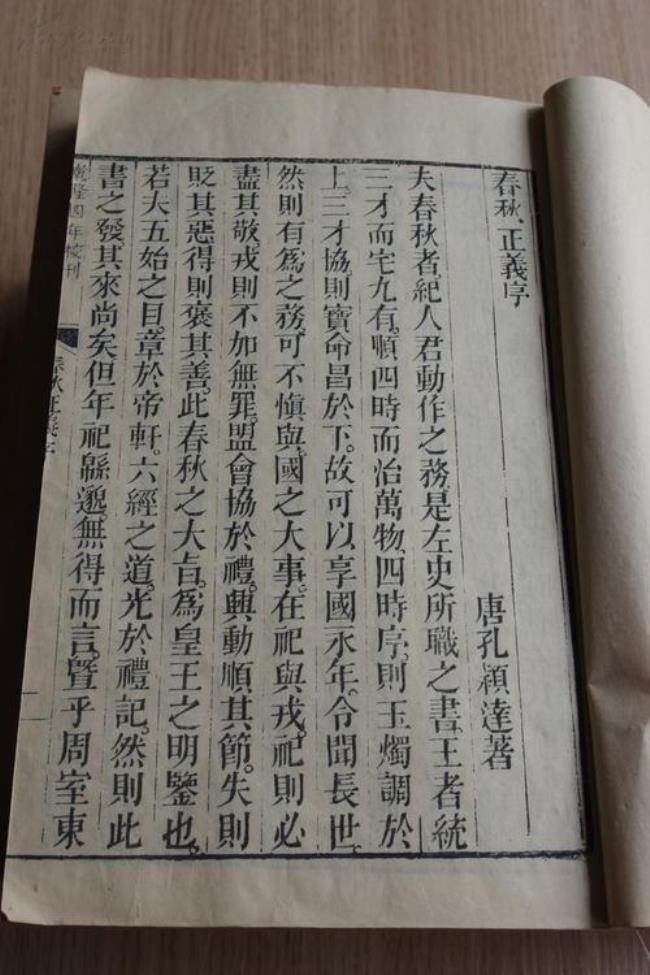 春秋正義序
唐孔穎達著
夫春秋者、紀人君動作之務、是左史所職之書、王者統
三才而宅九有。順四時而治萬物、四時序、則玉燭調於
上、三才協、則寶命昌於下。故可以享國永年。令聞長世。
然則有爲之務、可不愼與。國之大事。在祀與戎。祀則必
盡其敬。戎則不加無罪。盟會協於禮。興動順其節。失則
貶其惡。得則褒其善。此春秋之大旨。爲皇王之明鑒也。
若夫五始之目。章於帝軒。六經之道。光於禮記。然則此
書之發、其來尚矣。但年祀緜邈。無得而言。曁乎周室東
乾隆四年校刊
春秋正義序